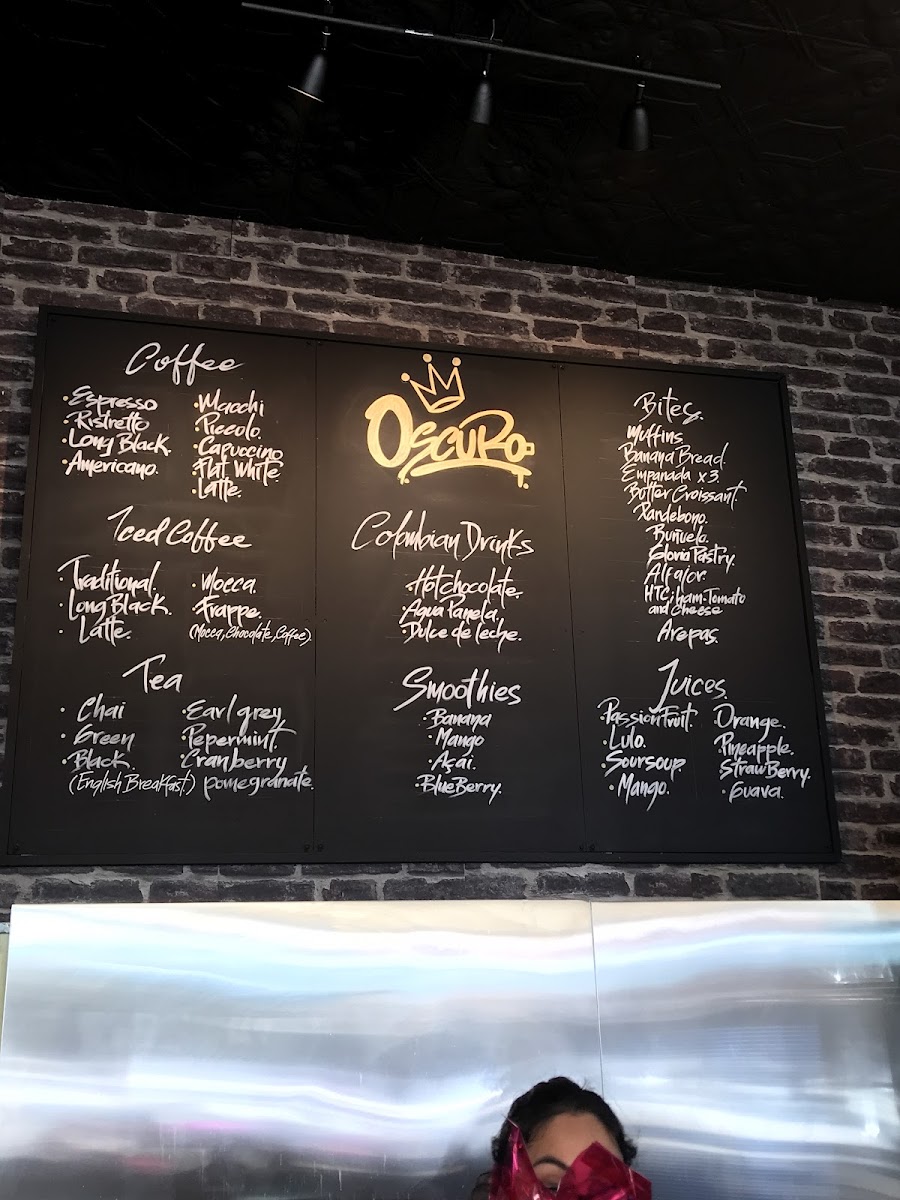 Coffee
• Espresso
• Ristretto
• Long Black
• Americano.
• Macchi
• Piccolo.
• Capuccino
• Flat White
• Latte.
Iced Coffee
• Traditional
• Long Black.
• Latte.
• Mocca.
• Frappe.
(Mocca, Chocolate, Coffee).
Tea
• Chai
• Green
• Black.
(English Breakfast.)
• Earl grey
• Pepermint.
• Cranberry
pomegranate.
Oscuro
Colombian Drinks
• Hot chocolate.
• Agua Panela.
• Dulce de leche.
Smoothies
• Banana
• Mango
• Açai.
• BlueBerry.
Bites.
Muffins
Banana Bread.
Empanada x 3.
Botter Croissant
Pandebono.
Buñuelo.
Gloria Pastry.
Alfajor.
HTC; ham-Tomato
and cheese
Arepas.
Juices.
• Passion Fruit.
• Lulo.
• Soursoup
• Mango.
Orange.
Pineapple.
StrawBerry.
• Guava.